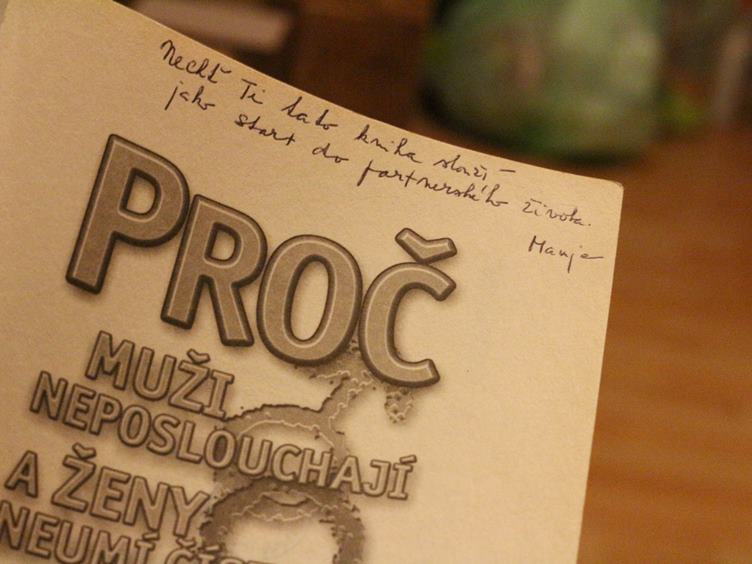 Nechť Ti tato kniha slouží –
jako start do partnerského života.
Manje
PROČ
MUŽI
NEPOSLOUCHAJÍ
A ŽENY
NEUMÍ ČÍST